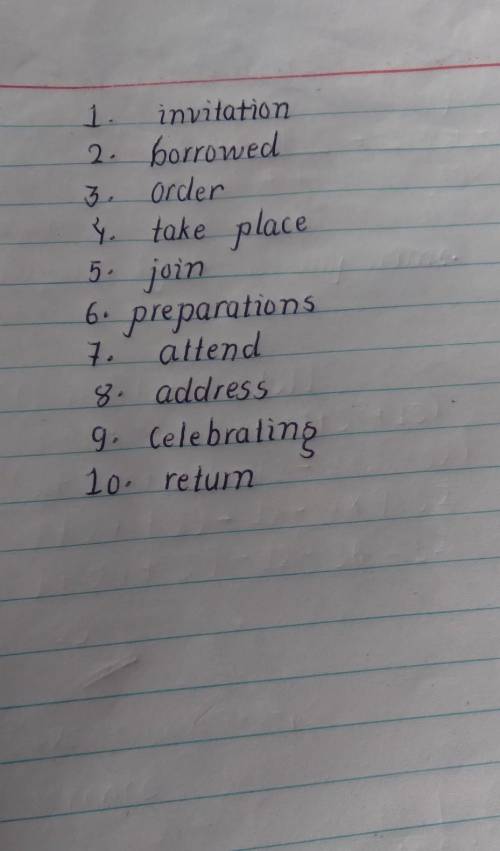 1. invitation
2. borrowed
3. order
4. take place
5. join
6. preparations
7. attend
8. address
9. celebrating
10. return